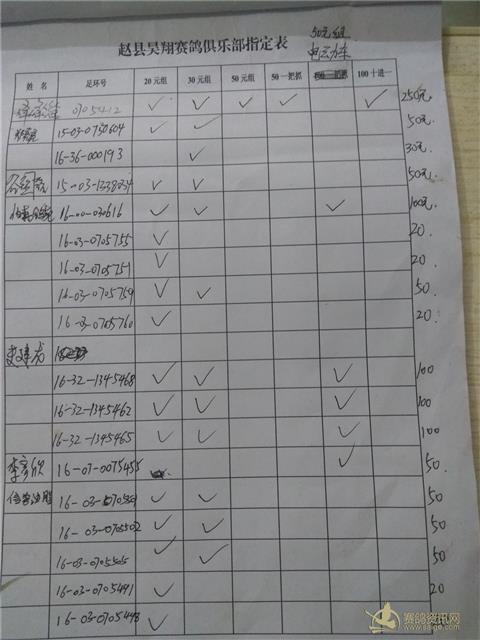 50元组
电动车
赵县昊翔赛鸽俱乐部指定表
姓 名 足环号 20元组 30元组 50元组 50一把抓 100一把抓 100十进一
0705412 ✓ ✓ ✓ ✓ ✓ 250元
15-03-0730604 ✓ ✓ 50元
16-36-000193 ✓ 30元
15-03-1338234 ✓ ✓ 50元
16-00-030616 ✓ ✓ ✓ 100元
16-03-0705755 ✓ 20
16-03-0705751 ✓ 20
16-03-0705759 ✓ ✓ 50
16-03-0705760 ✓ 20
史建龙
16-32-1345468 ✓ ✓ ✓ 100
16-32-1345462 ✓ ✓ ✓ 100
16-32-1345465 ✓ ✓ ✓ 100
李彦欣 16-07-0075455 ✓ 50
信誉油脂 16-03-0705501 ✓ ✓ 50
16-03-0705502 ✓ ✓ 50
16-03-0705505 ✓ ✓ 50
16-03-0705491 ✓ 20
16-03-0705498 ✓
赛鸽资讯网
www.saige.com